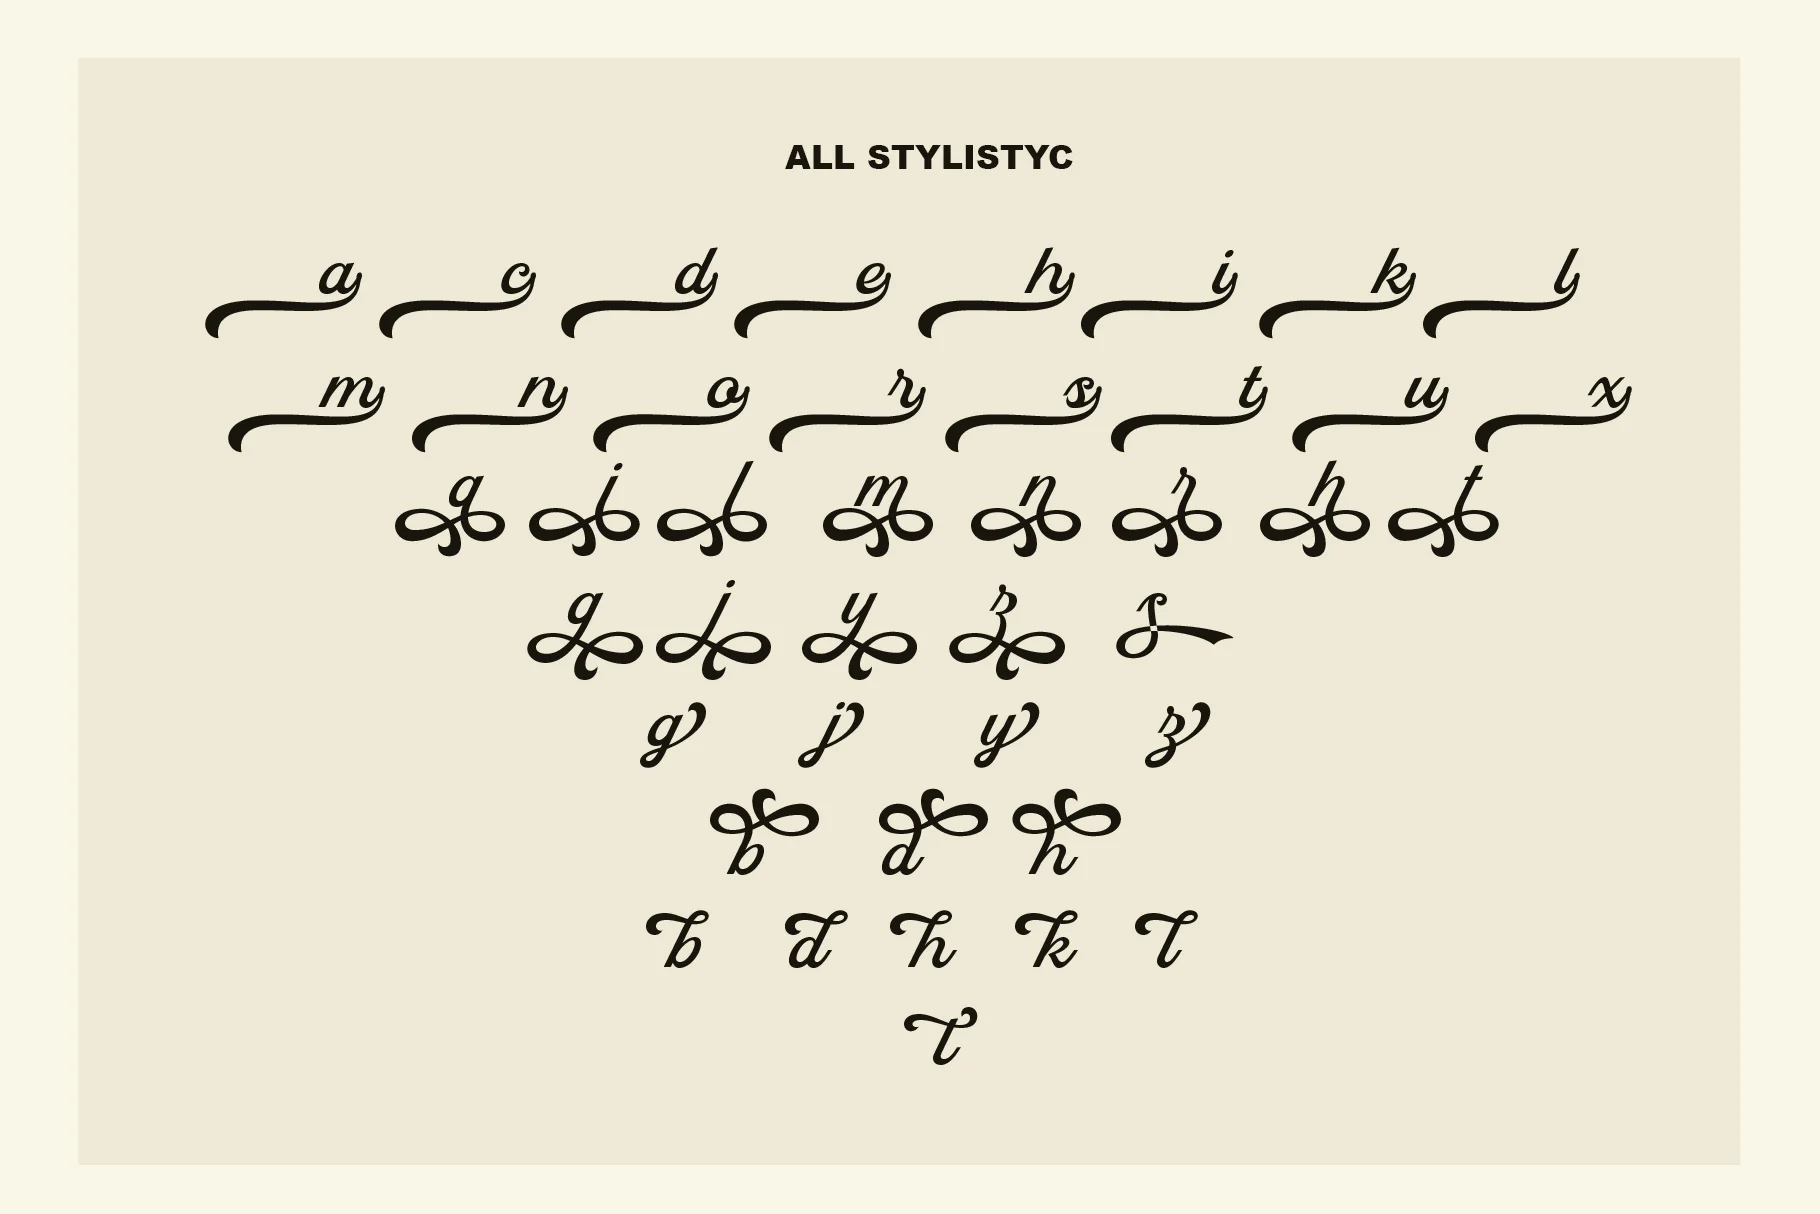 ALL STYLISTYC
a c d e h i k l
m n o r s t u x
q i l m n r h t
g j y z s
g j y z
b d h
b d h k l
t